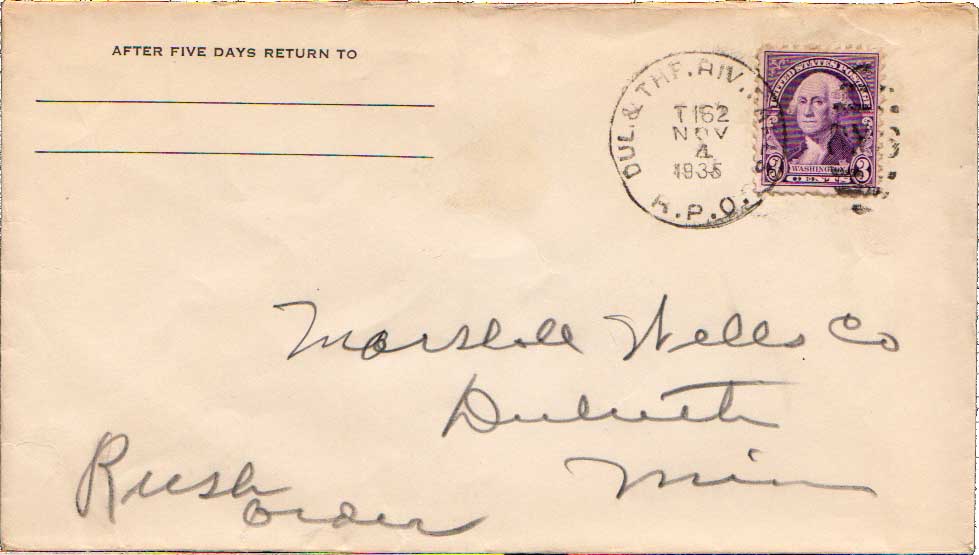 AFTER FIVE DAYS RETURN TO
DUL. & THF. RIV.
T 162
NOV
4
1935
R.P.O.
UNITED STATES POSTAGE
3 WASHINGTON 3
CENTS
Marshall Wells Co
Duluth
Minn
Rush
order